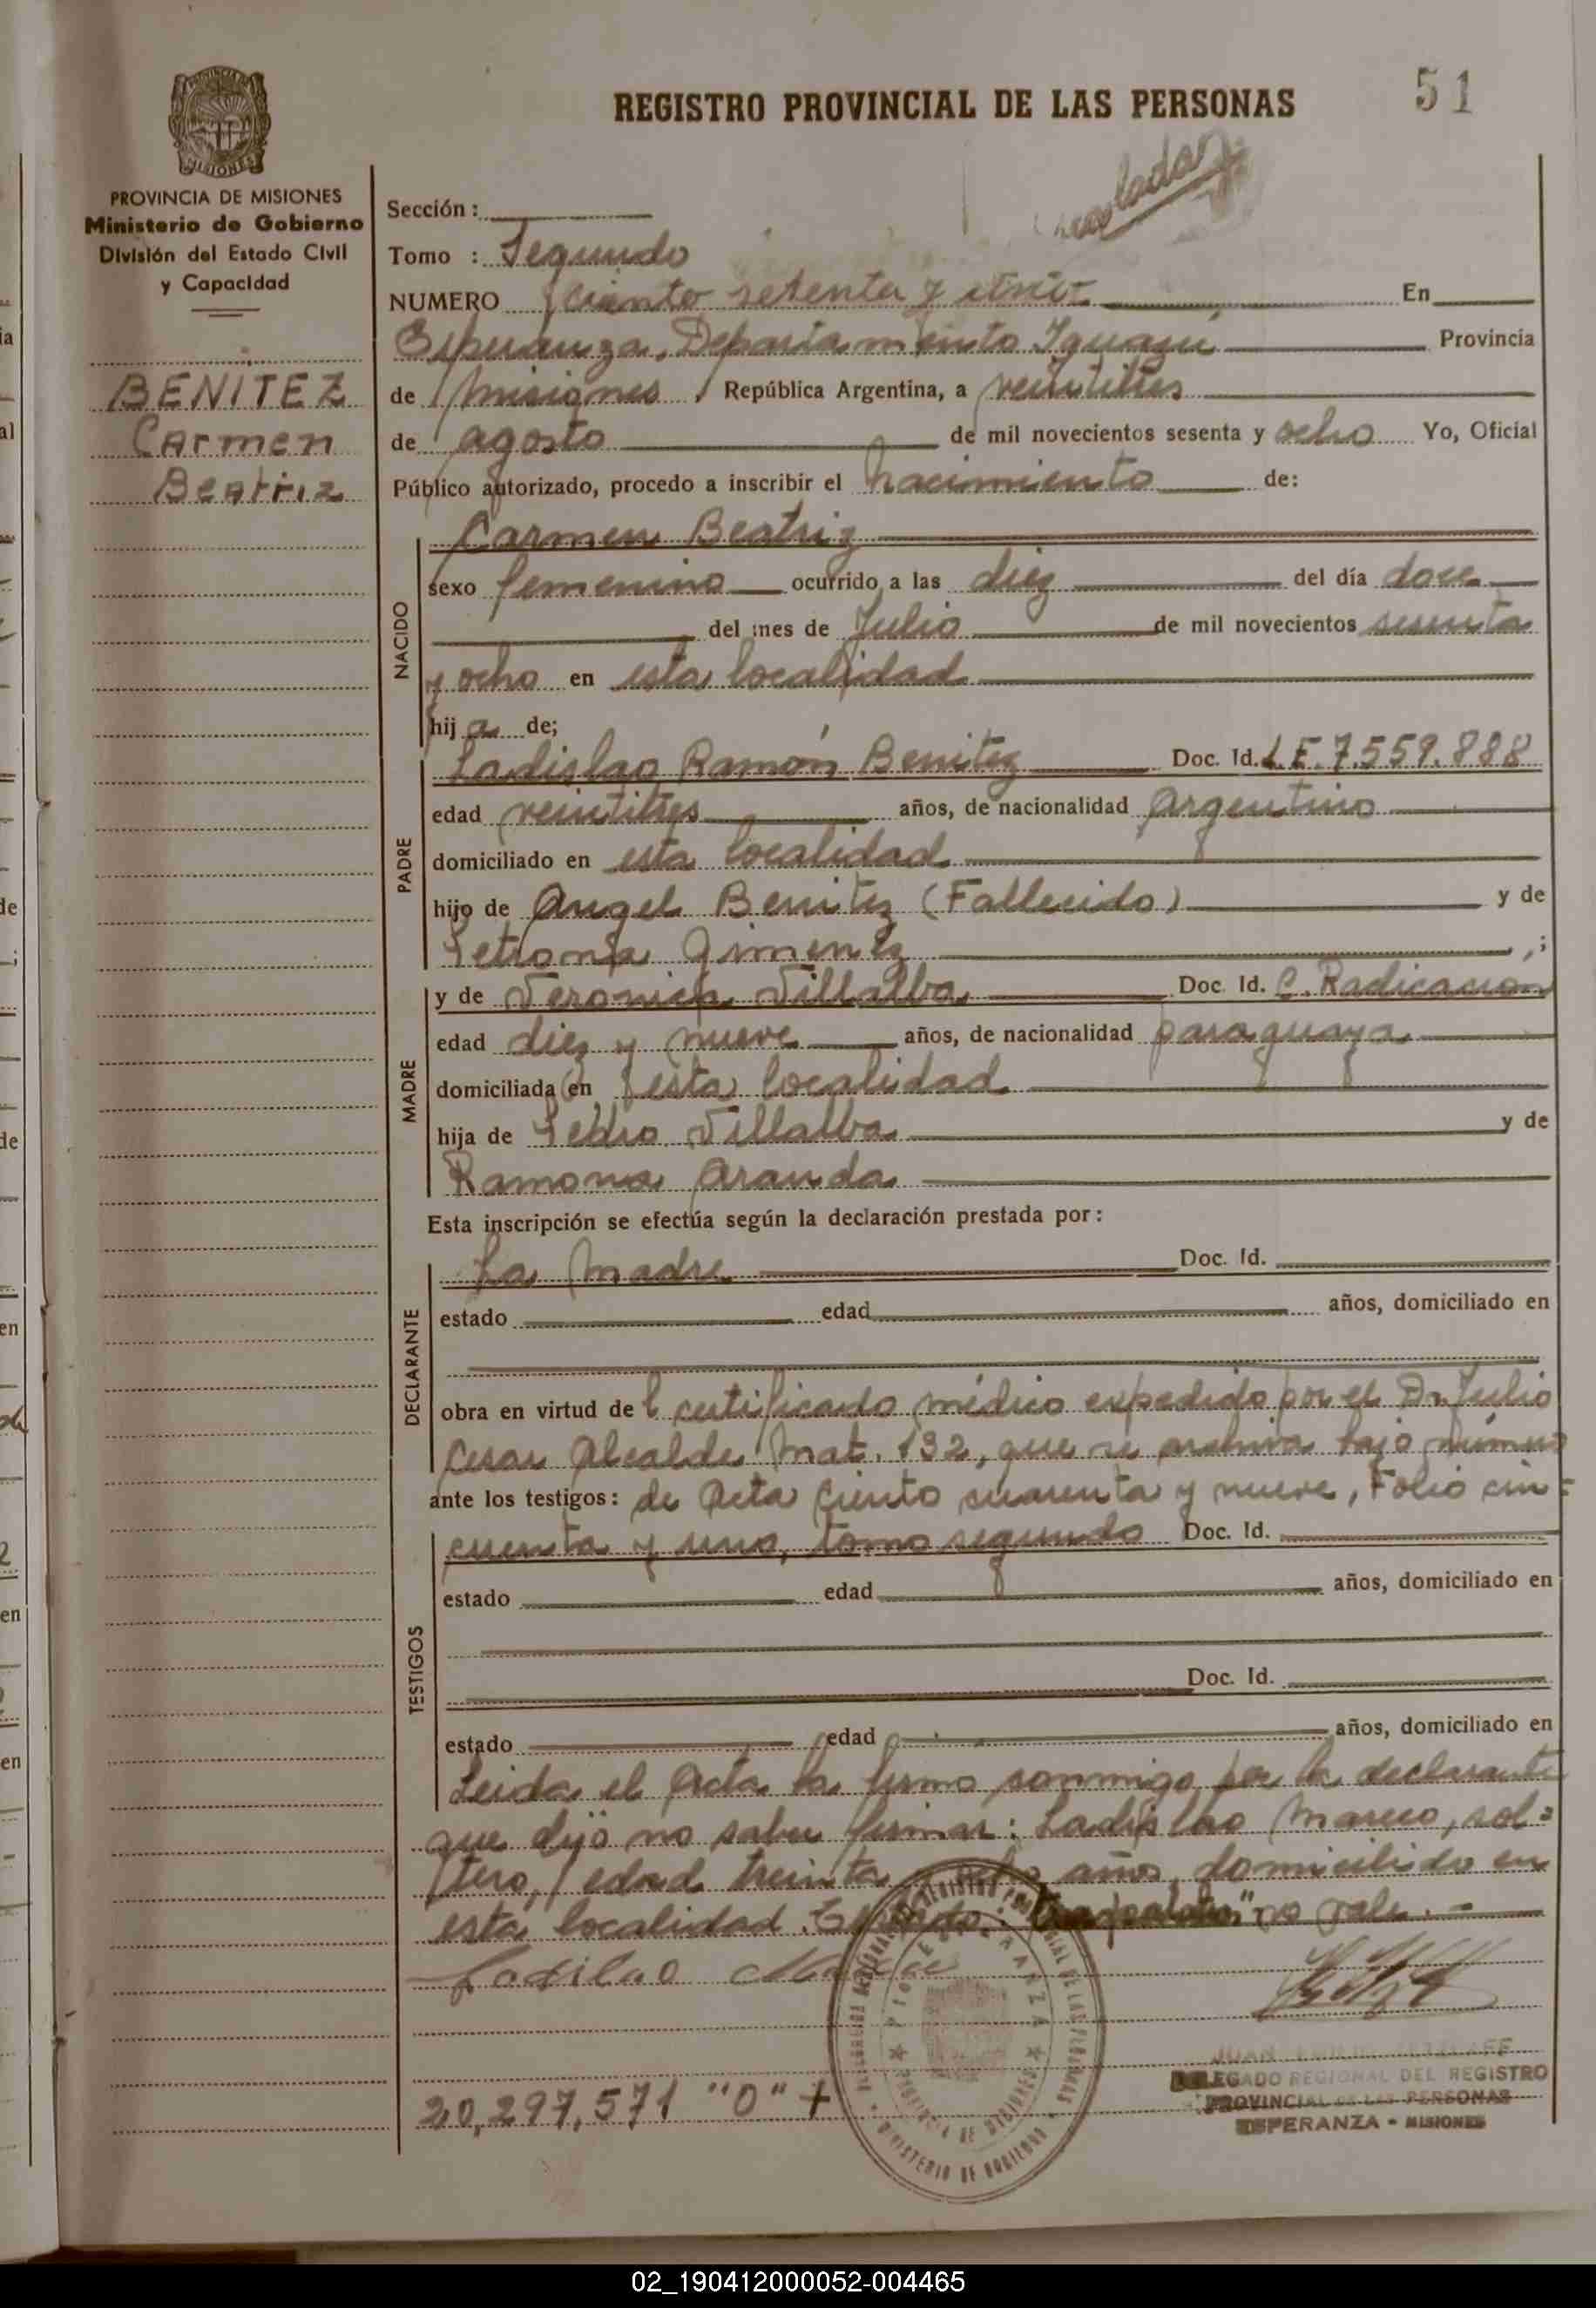 51
REGISTRO PROVINCIAL DE LAS PERSONAS
MISIONES
PROVINCIA DE MISIONES
Ministerio de Gobierno
División del Estado Civil
y Capacidad
BENITEZ
Carmen
Beatriz
Sección :
Tomo : Segundo
NUMERO ciento setenta y En
Esperanza, Departamento Iguazú Provincia
de Misiones, República Argentina, a veintitres
de agosto de mil novecientos sesenta y ocho Yo, Oficial
Público autorizado, procedo a inscribir el nacimiento de:
Carmen Beatriz
NACIDO
sexo femenino ocurrido a las diez del día doce
del mes de Julio de mil novecientos sesenta
y ocho en esta localidad
hij a de;
PADRE
Ladislao Ramón Benitez Doc. Id. L.E. 7.559.888
edad veintitres años, de nacionalidad argentino
domiciliado en esta localidad
hijo de Angel Benitez (Fallecido) y de
Petrona Gimenez ;
MADRE
y de Veronica Villalba Doc. Id. C. Radicacion
edad diez y nueve años, de nacionalidad paraguaya
domiciliada en esta localidad
hija de Pedro Villalba y de
Ramona Aranda
Esta inscripción se efectúa según la declaración prestada por :
DECLARANTE
La Madre Doc. Id.
estado edad años, domiciliado en
obra en virtud de l certificado médico expedido por el Dr. Julio
Cesar Alcalde Mat. 132, que se archiva bajo número
ante los testigos: de Acta ciento cuarenta y nueve, Folio cin=
cuenta y uno, tomo segundo Doc. Id.
TESTIGOS
estado edad años, domiciliado en
Doc. Id.
estado edad años, domiciliado en
Leida el Acta la firma conmigo por la declarante
que dijo no saber firmar: Ladislao Mareco, sol=
tero, edad treinta años, domiciliado en
esta localidad. no vale.-
Ladilao
JUAN
DELEGADO REGIONAL DEL REGISTRO
PROVINCIAL DE LAS PERSONAS
ESPERANZA - MISIONES
20,297,571 "O" +
02_190412000052-004465